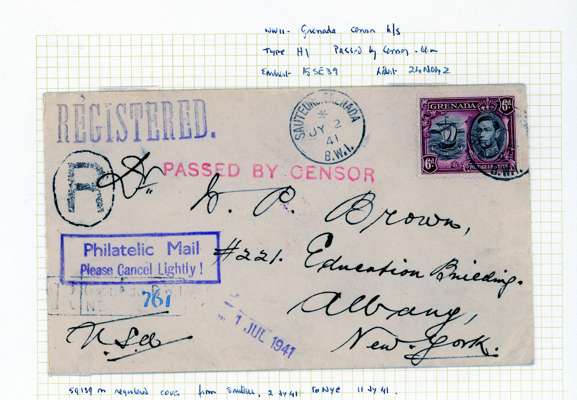 WWII - Grenada censor h/s
Type H1 Passed by Censor
Earliest 15 SE 39 Latest 24 Nov 42
REGISTERED.
SAUTEURS. GRENADA
JY 2
41
B.W.I.
GRENADA 6d
6d
B.W.I.
R
PASSED BY CENSOR
Dr. W. P. Brown,
Philatelic Mail
Please Cancel Lightly!
#221. Education Building.
761
Albany,
New-York.
1 JUL 1941
U.S.A.
registered cover from Sauteurs, 2 Jy 41 to NYC 11 Jy 41.